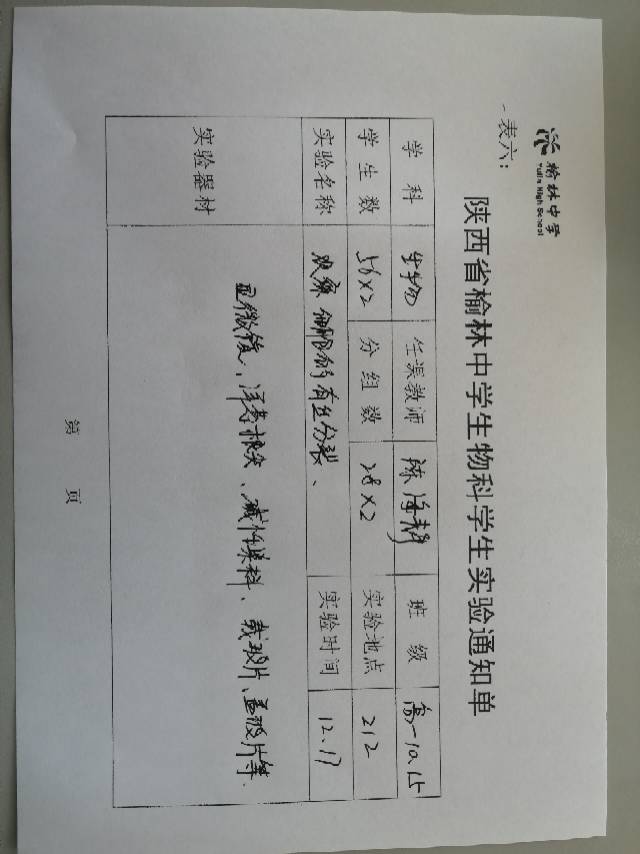 榆林中学
Yulin High School
表六：
陕西省榆林中学生物科学生实验通知单
学科 生物 任课教师 陈海 班级 高一10.15
学生数 56×2 分组数 28×2 实验地点 212
实验名称 观察细胞的有丝分裂、 实验时间 12.17
实验器材 显微镜、洋葱根尖、碱性染料、载玻片、盖玻片等.
第 页